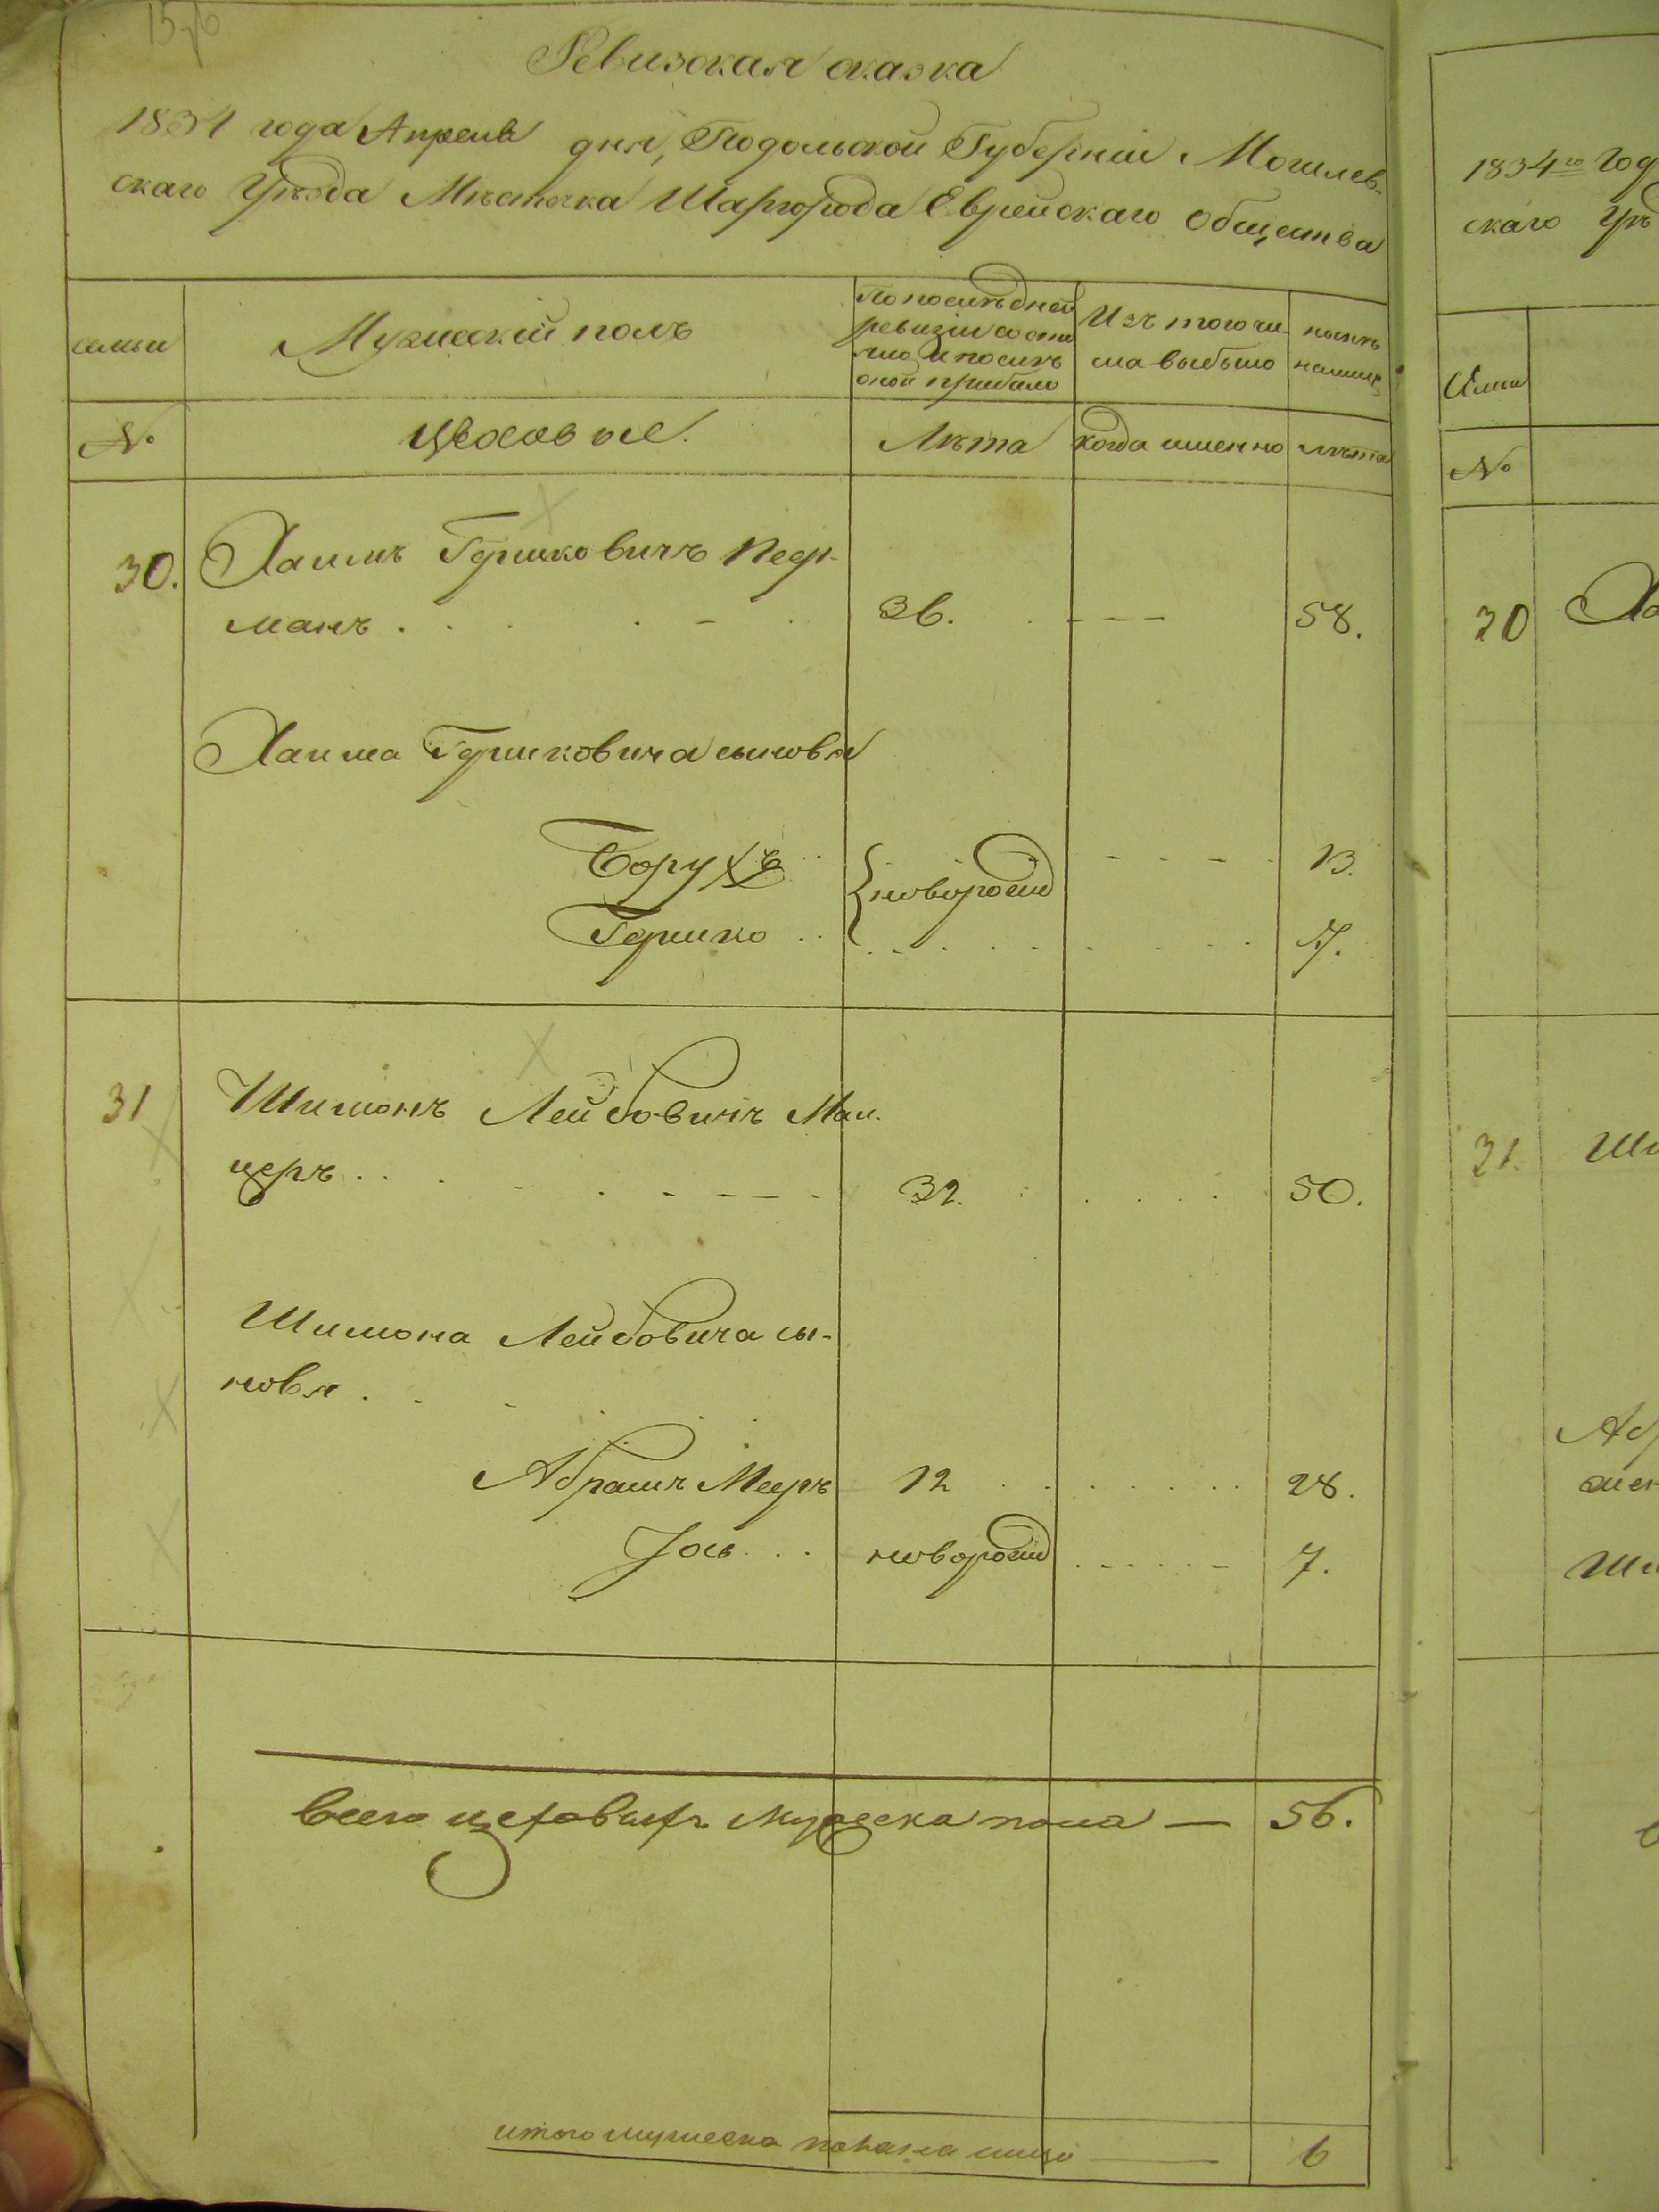 Ревизская сказка
1834 года Апреля дня, Подольской Губерніи Могилев-
скаго Уѣзда Мѣстечка Шаргорода Еврейскаго Общества
семьи
Мужескій полъ
По послѣдней
ревизіи состо
яло и послѣ
оной прибыло
Изъ того чи
сла выбыло
нынѣ
налице
№
Цеховые.
Лѣта
когда именно
лѣта
30.
Хаимъ Гершковичъ Перл-
манъ
36.
58.
Хаима Гершковича сыновья
Борухъ
новорожд
13.
Гершко
7.
31
Шимонъ Лейбовичъ Мал
церъ
32.
50.
Шимона Лейбовича сы-
новья
Абрамъ Мееръ
12
28.
Іось
новорожд
7.
Всего цеховыхъ мужеска пола — 56.
итого мужеска пола на лицо — 6
1834го Год
скаго Уѣ
Семьи
№
30
Ха
31.
Ши
Аб
жен
Ши